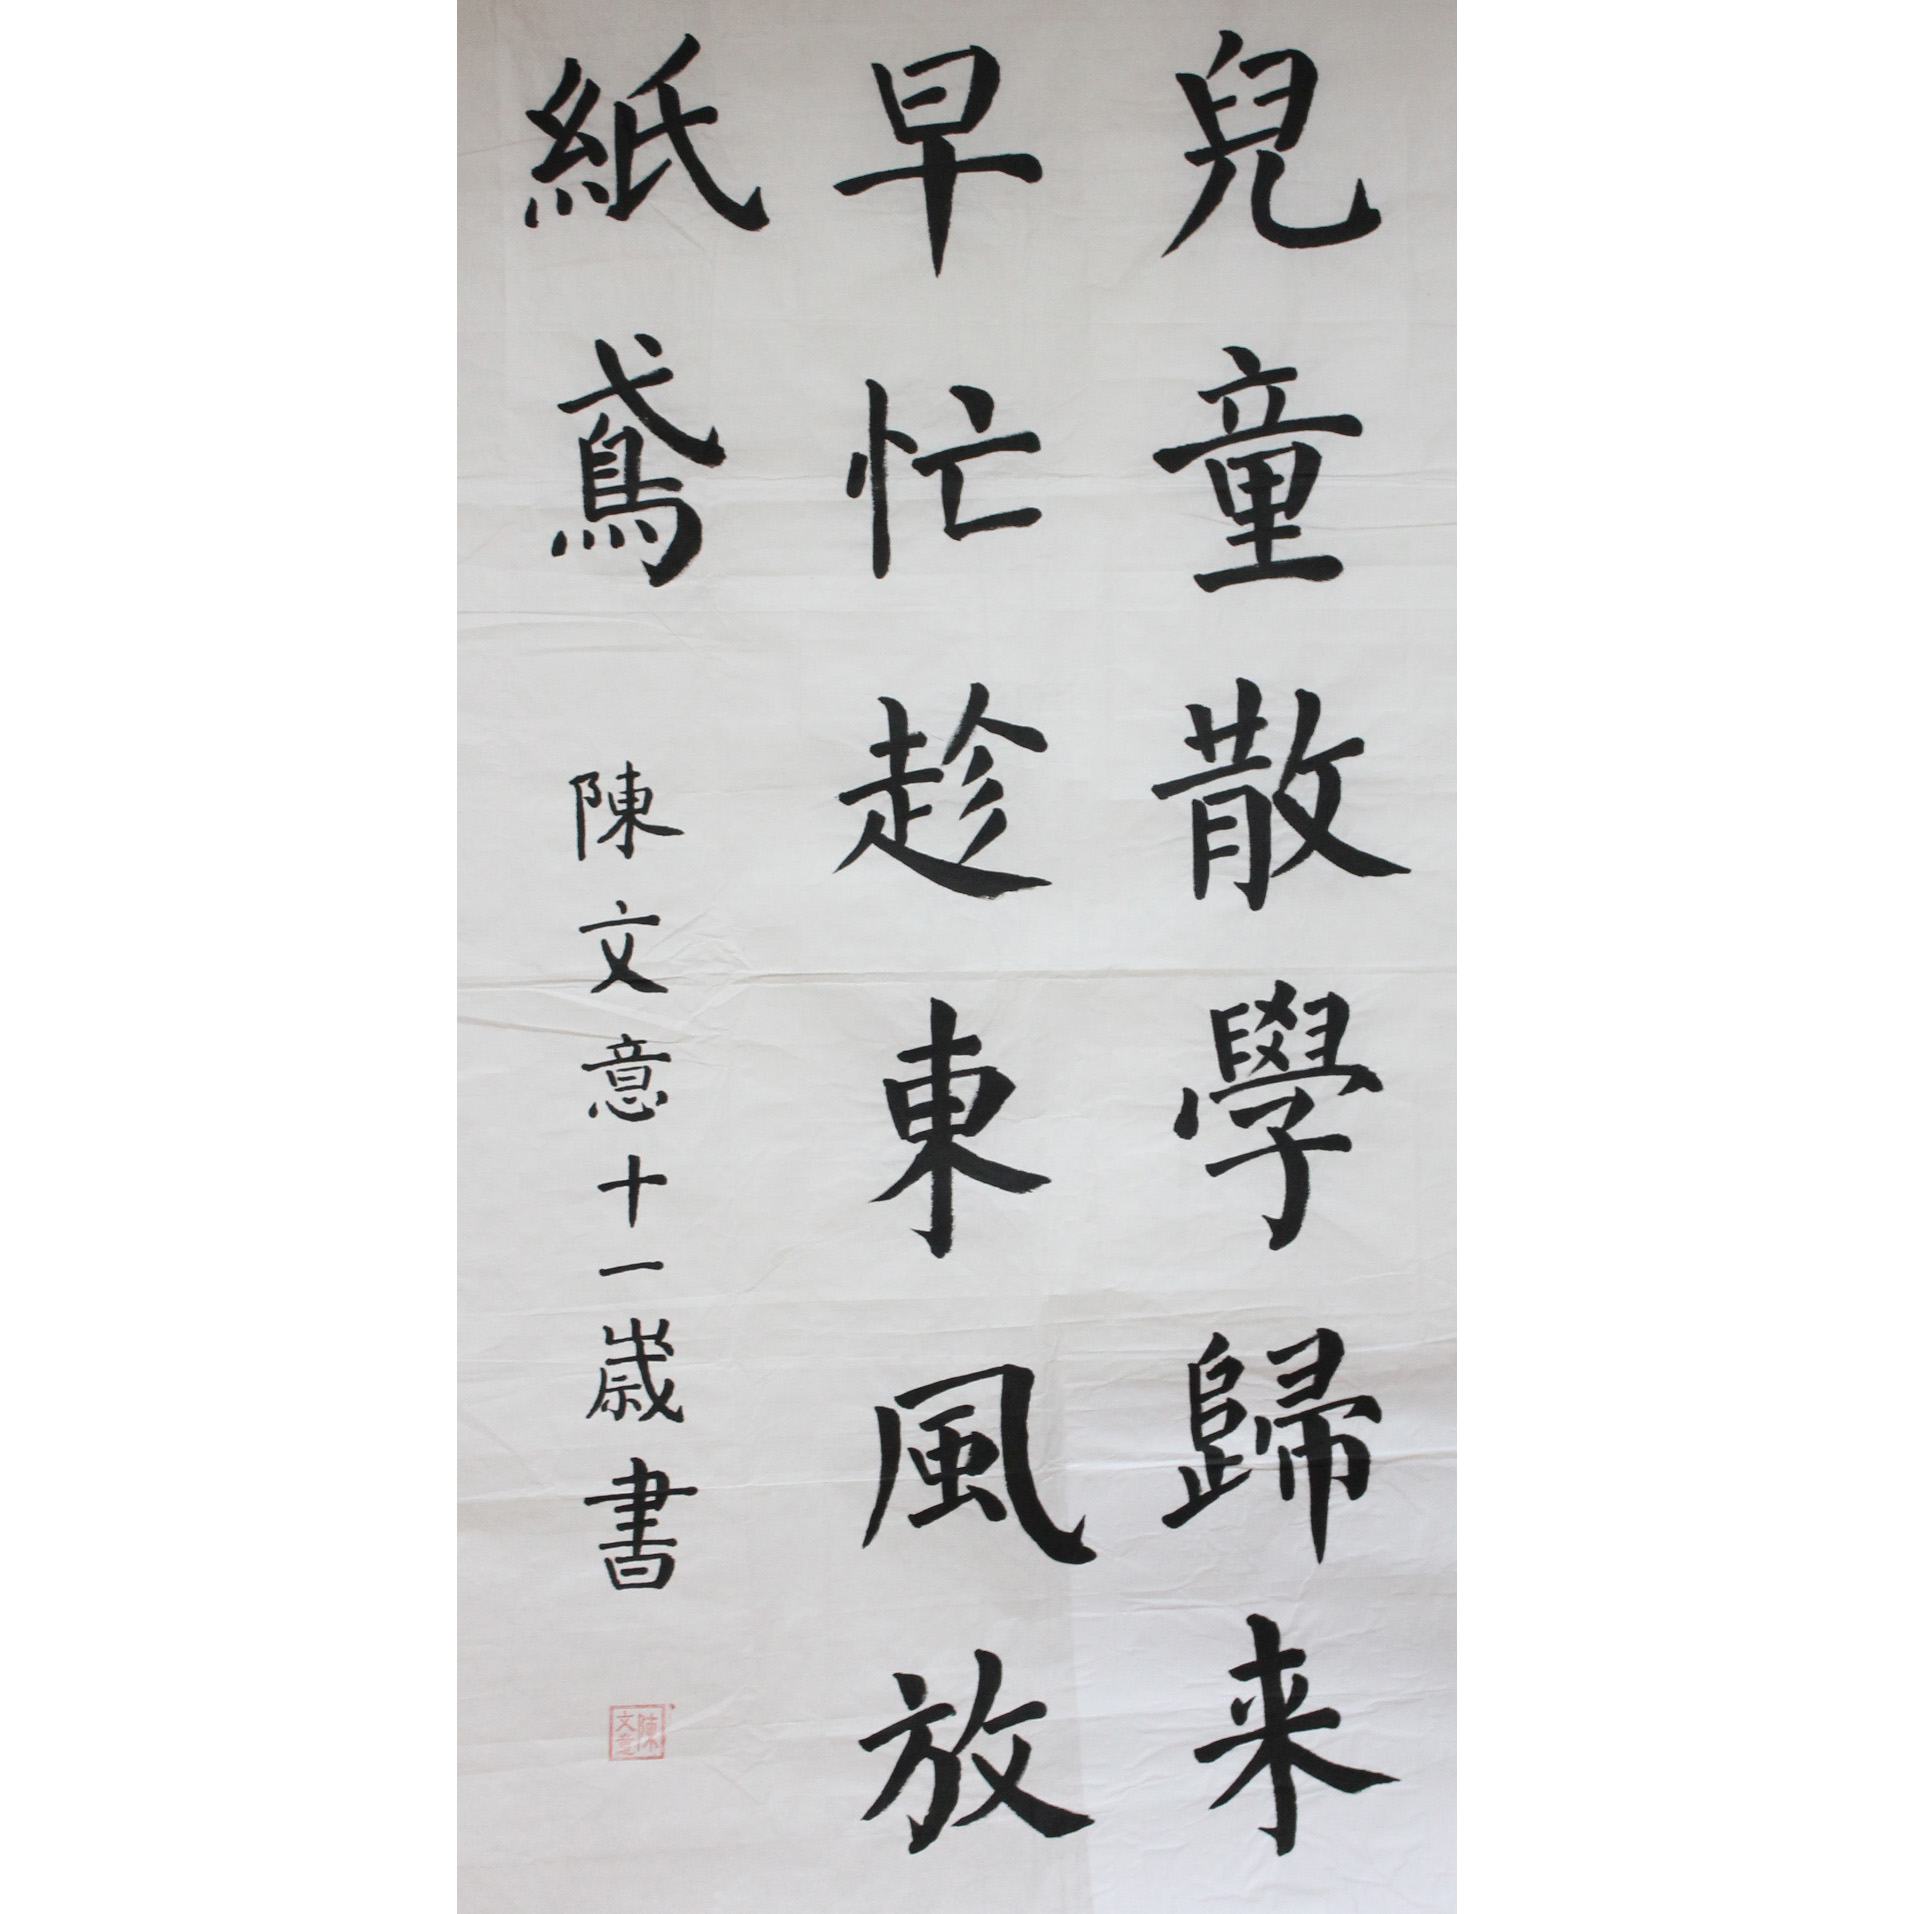 兒童散學歸来
早忙趁東風放
紙鳶
陳文意十一歲書
陳文意